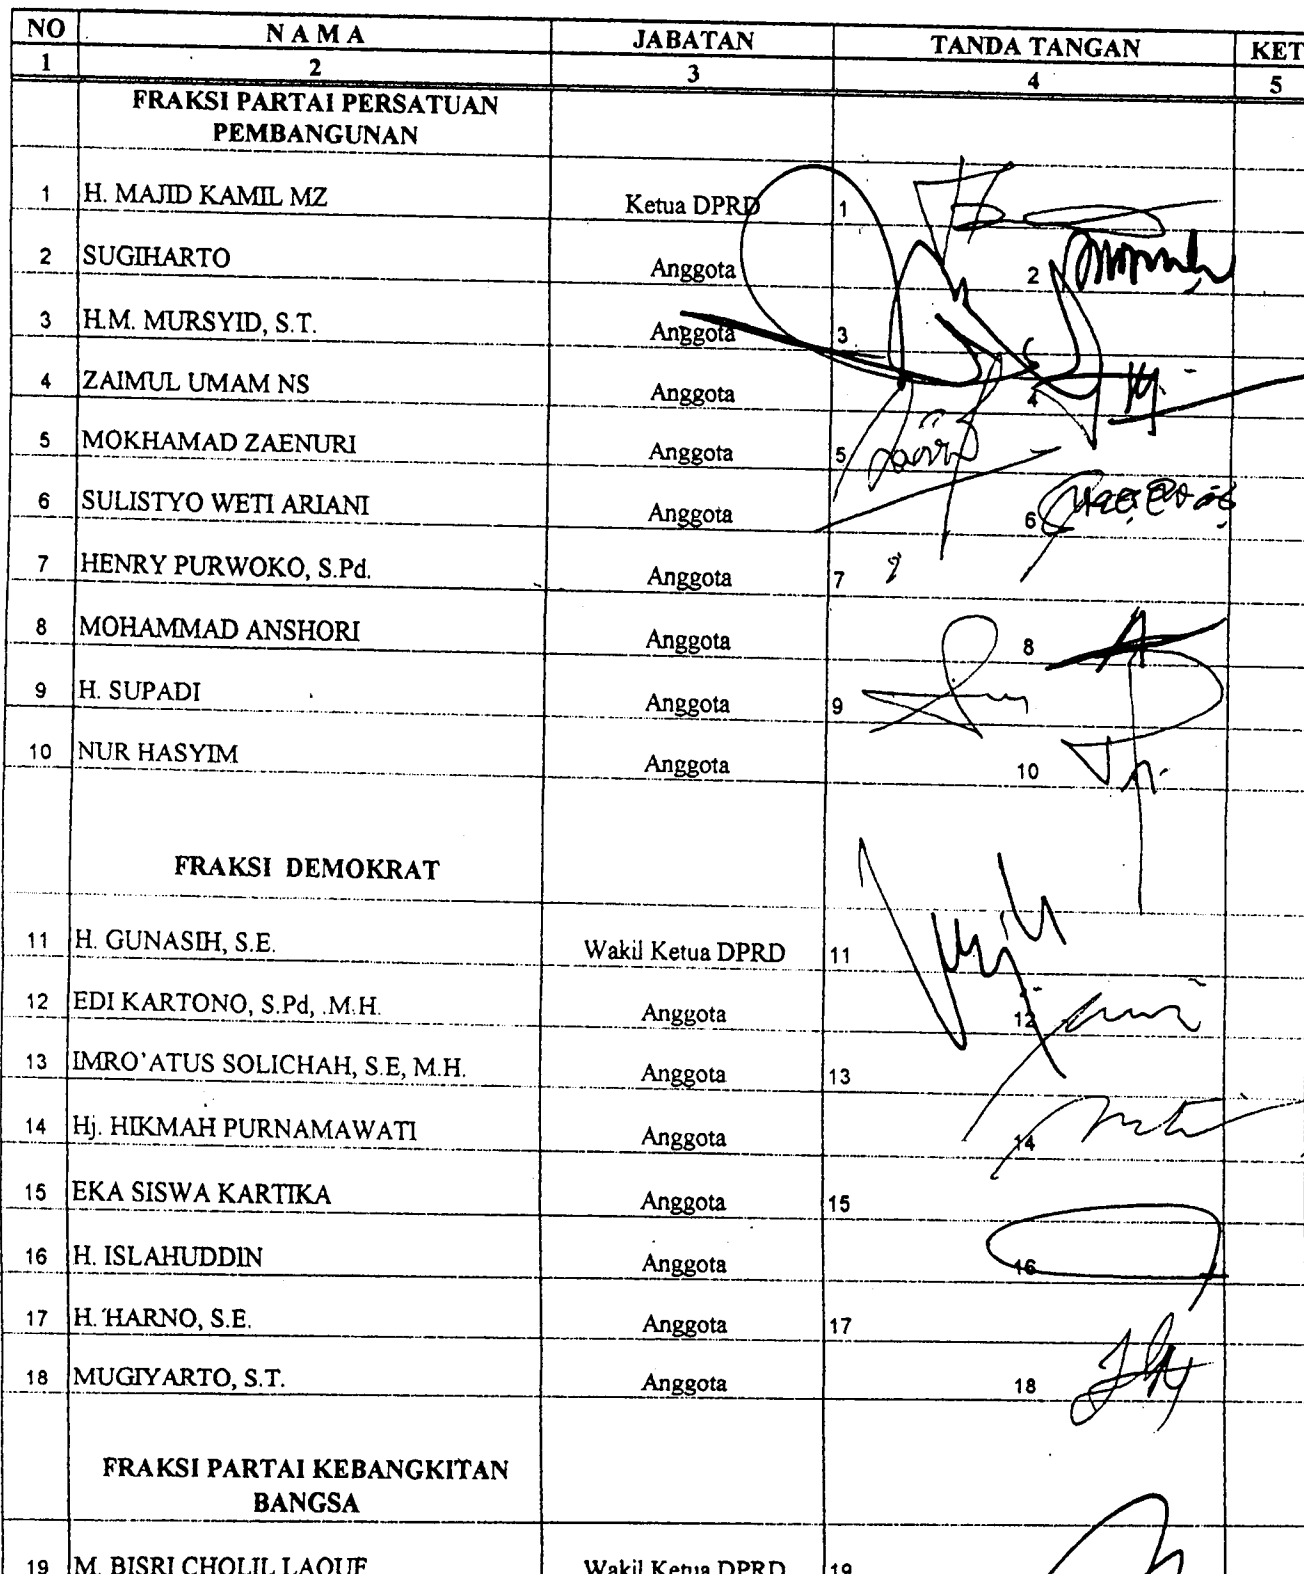 NO N A M A JABATAN TANDA TANGAN KET
1 2 3 4 5
FRAKSI PARTAI PERSATUAN
PEMBANGUNAN
1 H. MAJID KAMIL MZ Ketua DPRD 1
2 SUGIHARTO Anggota 2
3 H.M. MURSYID, S.T. Anggota 3
4 ZAIMUL UMAM NS Anggota 4
5 MOKHAMAD ZAENURI Anggota 5
6 SULISTYO WETI ARIANI Anggota 6
7 HENRY PURWOKO, S.Pd. Anggota 7
8 MOHAMMAD ANSHORI Anggota 8
9 H. SUPADI Anggota 9
10 NUR HASYIM Anggota 10
FRAKSI DEMOKRAT
11 H. GUNASIH, S.E. Wakil Ketua DPRD 11
12 EDI KARTONO, S.Pd, .M.H. Anggota 12
13 IMRO'ATUS SOLICHAH, S.E, M.H. Anggota 13
14 Hj. HIKMAH PURNAMAWATI Anggota 14
15 EKA SISWA KARTIKA Anggota 15
16 H. ISLAHUDDIN Anggota 16
17 H. HARNO, S.E. Anggota 17
18 MUGIYARTO, S.T. Anggota 18
FRAKSI PARTAI KEBANGKITAN
BANGSA
19 M. BISRI CHOLIL LAQUF Wakil Ketua DPRD 19